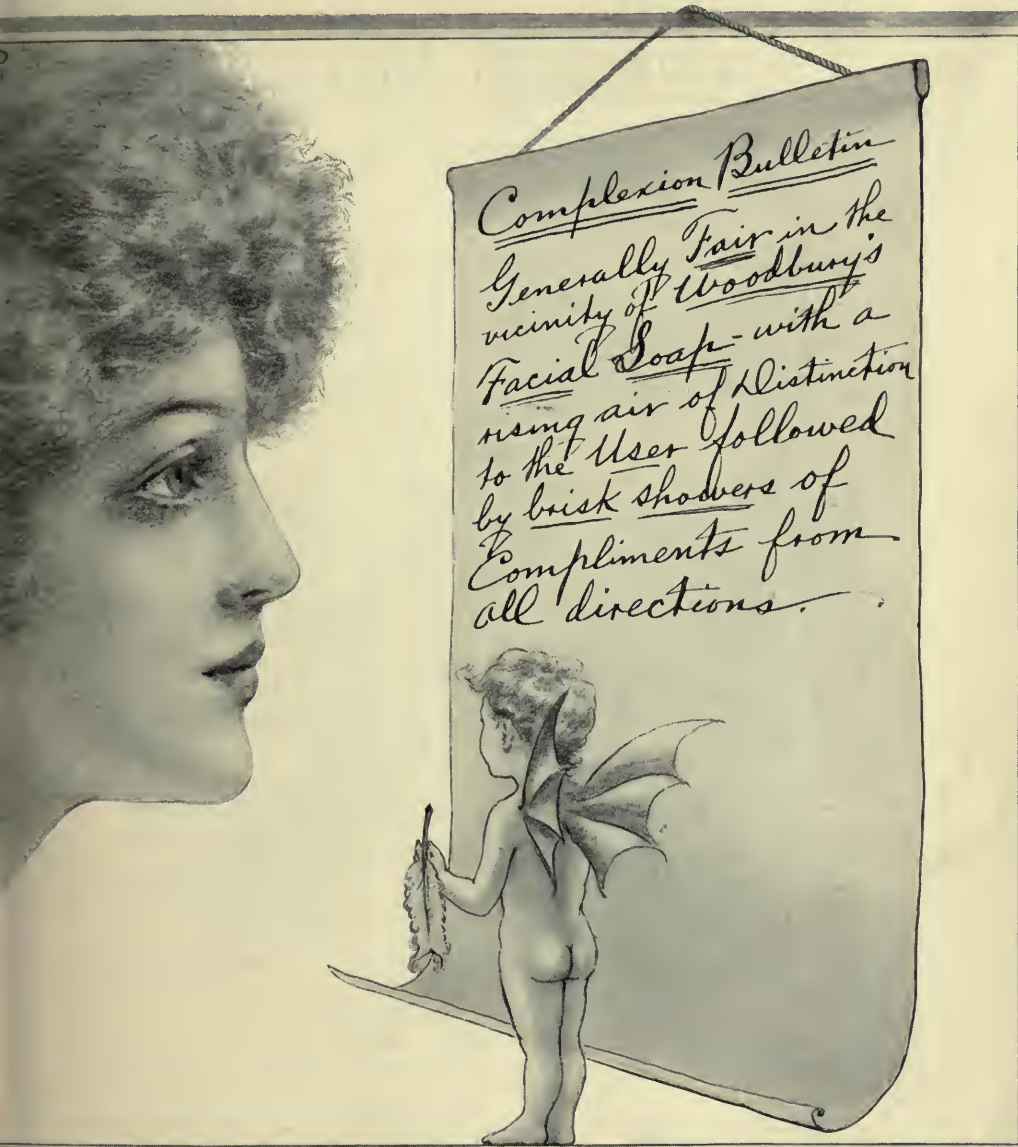 Complexion Bulletin
Generally Fair in the
vicinity of Woodbury's
Facial Soap - with a
rising air of Distinction
to the User followed
by brisk showers of
Compliments from
all directions.